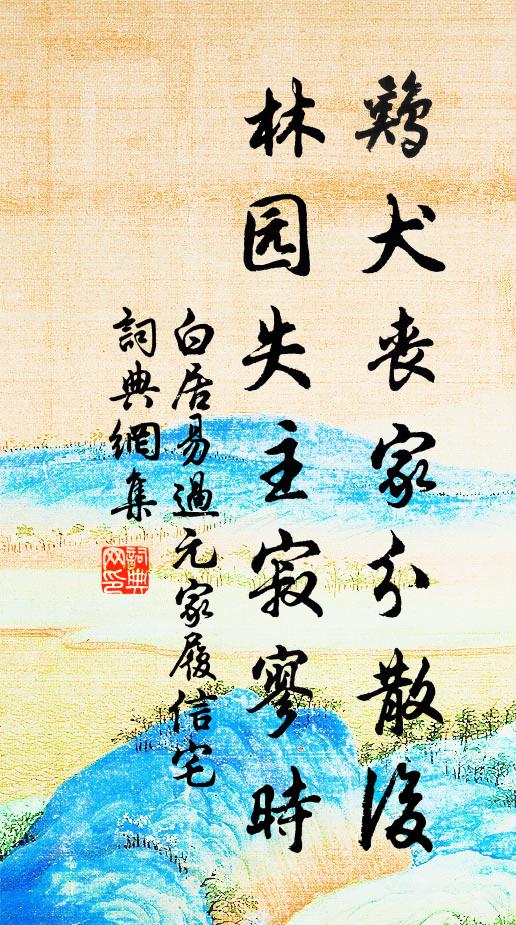 鷄犬丧家分散後
林园失主寂寥時
白居易過元家履信宅
詞典網集
詞典
网印